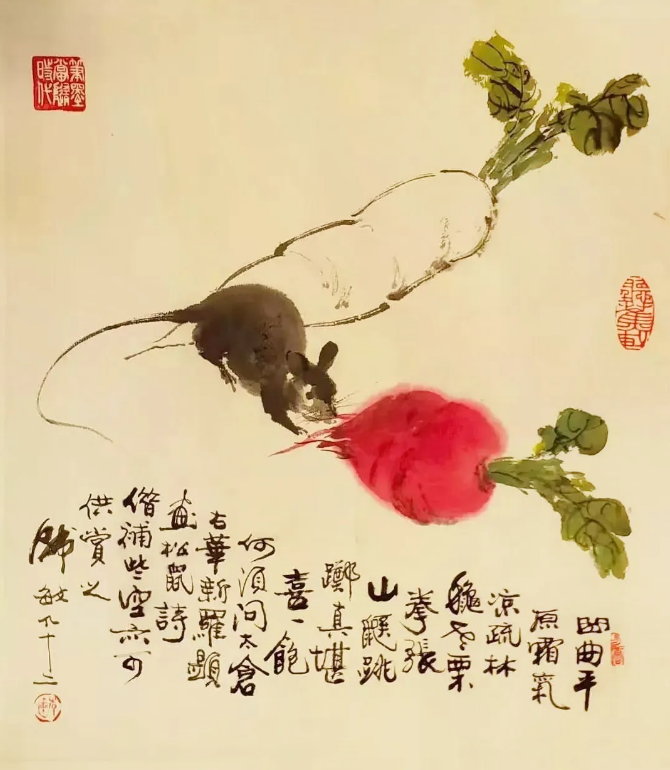 筆墨
當隨
時代
凹曲平
原霜氣
涼疏林
龝老栗
拳張
山鼯跳
躑真堪
喜一飽
何須問太倉
右華新羅題
畫松鼠詩
借補些空亦可
供賞之
韓敏九十二